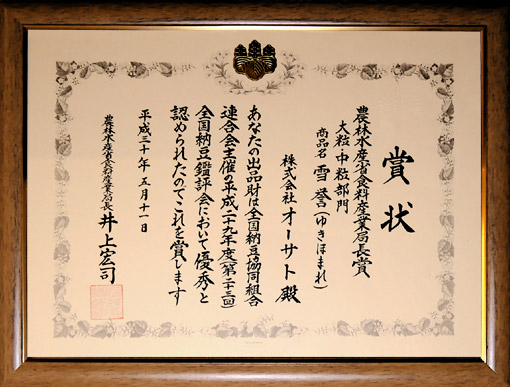 賞状
農林水産省食料産業局長賞
大粒・中粒部門
商品名 雪誉(ゆきほまれ)
株式会社オーサト殿
あなたの出品財は全国納豆協同組合
連合会主催の平成二十九年度(第二十三回)
全国納豆鑑評会において優秀と
認められたのでこれを賞します
平成三十年五月十一日
農林水産省食料産業局長 井上宏司